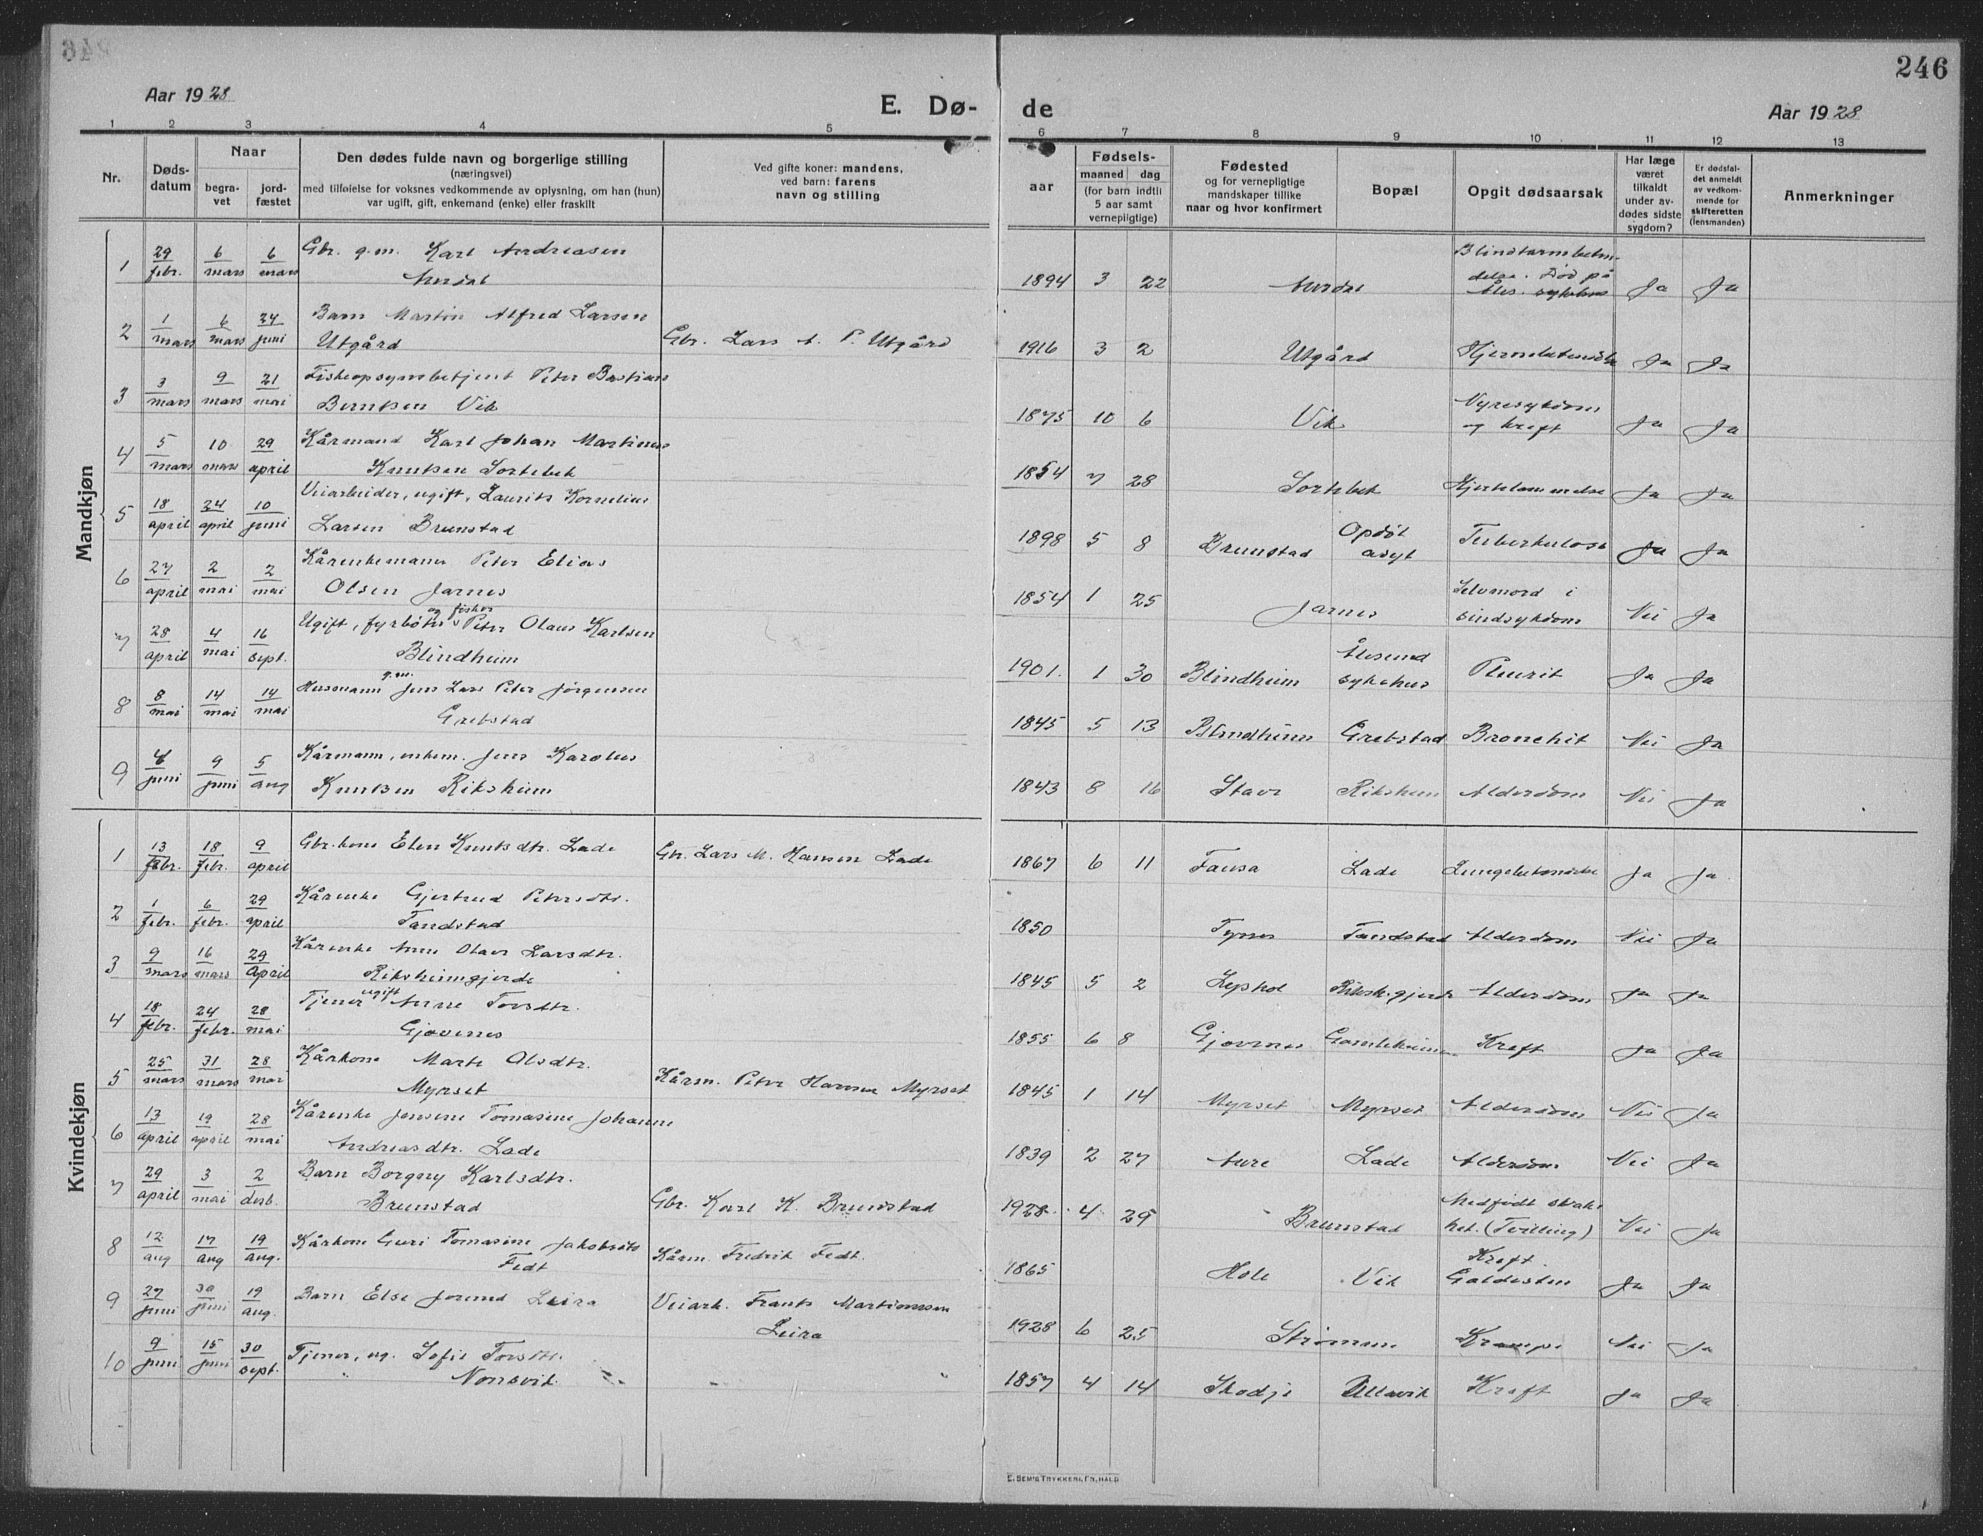 246
Aar 1928
E. Dø-
de
Aar 1928
1 2 3 4 5 6 7 8 9 10 11 12 13
Nr.
Døds-
datum
Naar
begra-
vet
jord-
fæstet
Den dødes fulde navn og borgerlige stilling
(næringsvei)
med tilføielse for voksnes vedkommende av oplysning, om han (hun)
var ugift, gift, enkemand (enke) eller fraskilt
Ved gifte koner: mandens,
ved barn: farens
navn og stilling
Fødsels-
aar
maaned dag
(for barn indtil
5 aar samt
vernepligtige)
Fødested
og for vernepligtige
mandskaper tillike
naar og hvor konfirmert
Bopæl
Opgit dødsaarsak
Har læge
været
tilkaldt
under av-
dødes sidste
sygdom?
Er dødsfal-
det anmeldt
av vedkom-
mende for
skifteretten
(lensmanden)
Anmerkninger
Mandkjøn
1 29/febr. 6/mars 6/mars Gbr. g.m. Karl Andreasen
Aurdal
1894 3 22 Aurdal Ja Ja
2 1/mars 6/mars 24/juni Barn Martin Alfred Larsen
Utgård Gbr. Lars A. P. Utgård
1916 3 2 Utgård Ja Ja
3 3/mars 9/mars 21/mai Fiskeopsynsbetjent Peter Bastian
Berntsen Vik
1875 10 6 Vik Nyresykdom
og kreft Ja Ja
4 5/mars 10/mars 29/april Kårmand Karl Johan Martinus
Knutsen Sortebek
1854 7 28 Sortebek Hjertelammelse Ja Ja
5 18/april 24/april 10/juni Veiarbeider, ugift, Laurits Kornelius
Larsen Brunstad
1898 5 8 Brunstad Opdøl
asyl Tuberkulose Ja Ja
6 27/april 2/mai 2/mai Kårenkemann Peter Elias
Olsen Jarnes
1854 1 25 Jarnes Selvmord i
sindsykdom Nei Ja
7 28/april 4/mai 16/sept. Ugift, fyrbøter og fisker Peter Olaus Karlsen
Blindheim
1901. 1 30 Blindheim Ålesund
sykehus Pleurit Ja Ja
8 8/mai 14/mai 14/mai Husmann g.m. Jens Lars Peter Jørgensen
Grebstad
1845 5 13 Blindheim Grebstad Bronchit Nei Ja
9 4/juni 9/juni 5/aug Kårmann, enkem. Jens Karolus
Knutsen Riksheim
1843 8 16 Stave Riksheim Alderdom Nei Ja
Kvindekjøn
1 13/febr. 18/febr. 9/april Gbr.kone Elen Knutsdtr. Lade Gbr. Lars M. Hansen Lade
1867 6 11 Fausa Lade Lungebetændelse Ja Ja
2 1/febr. 6/febr. 29/april Kårenke Gjertrud Petersdtr.
Tandstad
1850 Tynes Tandstad Alderdom Nei Ja
3 9/mars 16/mars 29/april Kårenke Anne Olave Larsdtr.
Riksheimgjerde
1845 5 2 Riksh.gjerde Alderdom Ja Ja
4 18/febr. 24/febr. 28/mai Tjener ugift Anne Torsdtr.
Gjøvenes
1855 6 8 Gjøvenes Gamleheimen Kreft Ja Ja
5 25/mars 31/mars 28/mai Kårkone Marte Olsdtr.
Myrset Kårm. Peter Hansen Myrset
1845 1 14 Myrset Myrset Alderdom Nei Ja
6 13/april 19/april 28/mai Kårenke Jensine Tomasine Johanne
Andreasdtr. Lade
1839 2 27 Aure Lade Alderdom Nei Ja
7 29/april 3/mai 2/desb. Barn Borgny Karlsdtr.
Brunstad Gbr. Karl K. Brunstad
1928 4 29 Brunstad Medfødt svak-
het. (Tvilling) Nei Ja
8 12/aug 17/aug 19/aug. Kårkone Guri Tomasine Jakobsdtr.
Fedt Kårm. Fredrik Fedt.
1865 Hole Vik Kreft.
Galdesten Ja Ja
9 27/juni 30/juni 19/aug. Barn Else Jorund Leira Veiarb. Frants Martinussen
Leira
1928 6 25 Strømmen Krampe Nei Ja
10 9/juni 15/juni 30/sept. Tjener, ug. Sofie Torsdtr.
Nonsvik
1857 4 14 Skodje Ullavik Kreft Ja Ja
E. SEM'S TRYKKERI, FR.HALD